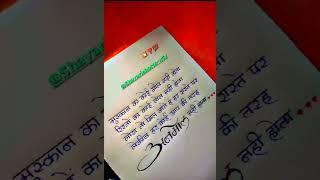 मुस्कान का कोई मोल नहीं होता
रिश्तों का कोई तोल नहीं होता
लोग तो मिल जाते है हर रास्ते पर
लेकिन हर कोई आप की तरह
अनमोल नहीं होता